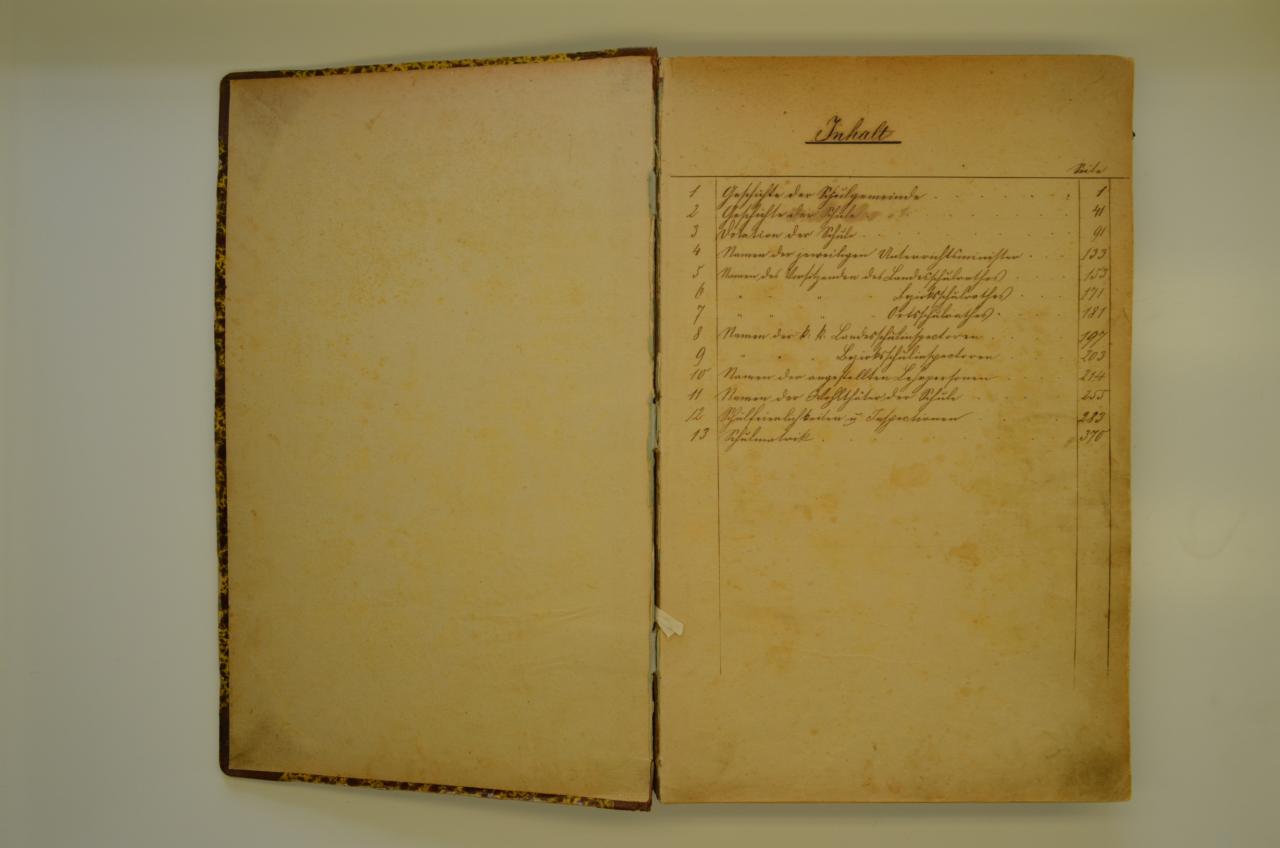 Inhalt
Seite
1 Geschichte der Schulgemeinde 1
2 Geschichte der Schule 41
3 Dotation der Schule 91
4 Namen der jeweiligen Unterrichtsminister 133
5 Namen des Vorsitzenden des Landesschulrathes 153
6 " " " Bezirksschulrathes 171
7 " " " " Ortsschulrathes 181
8 Namen der k. k. Landesschulinspectoren 197
9 " " " Bezirksschulinspectoren 203
10 Namen der angestellten Lehrpersonen 214
11 Namen der Wohlthäter der Schule 255
12 Schulfeierlichkeiten u Inspectionen 283
13 Schulmatrik 370